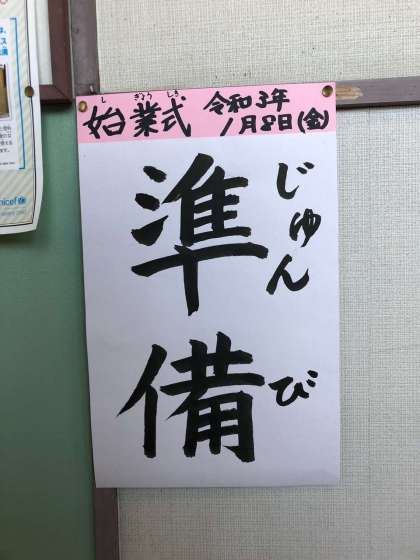 しぎょうしき
始業式 令和3年
1月8日(金)
準備
じゅんび
nicef